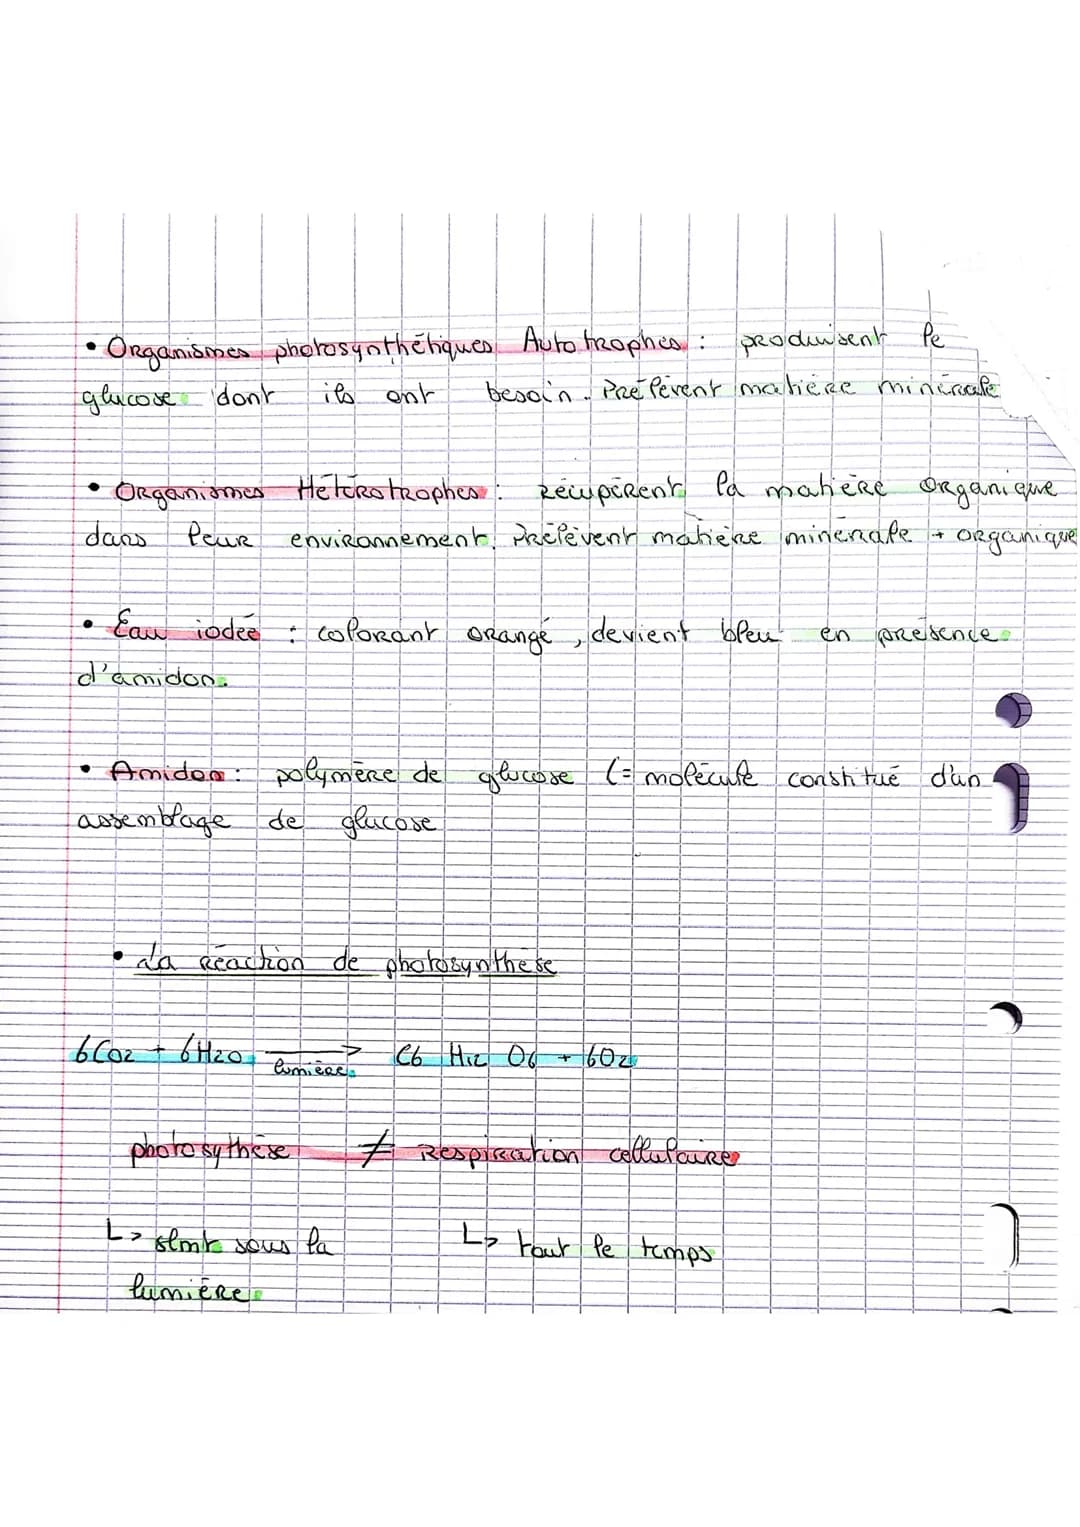 • Organismes photosynthétiques Autotrophes : produisent le
glucose dont ils ont besoin. Prélèvent matière minérale
• Organismes Hétérotrophes : récupèrent la matière organique
dans leur environnement. Prélèvent matière minérale + organique
• Eau iodée : colorant orangé, devient bleu en présence
d'amidon.
• Amidon : polymère de glucose (= molécule constitué d'un
assemblage de glucose
• La réaction de photosynthèse
6CO2 + 6H2O → C6 H12 O6 + 6O2
lumière
photosythèse ≠ Respiration cellulaire
↳ slmt sous la ↳ tout le temps
lumière